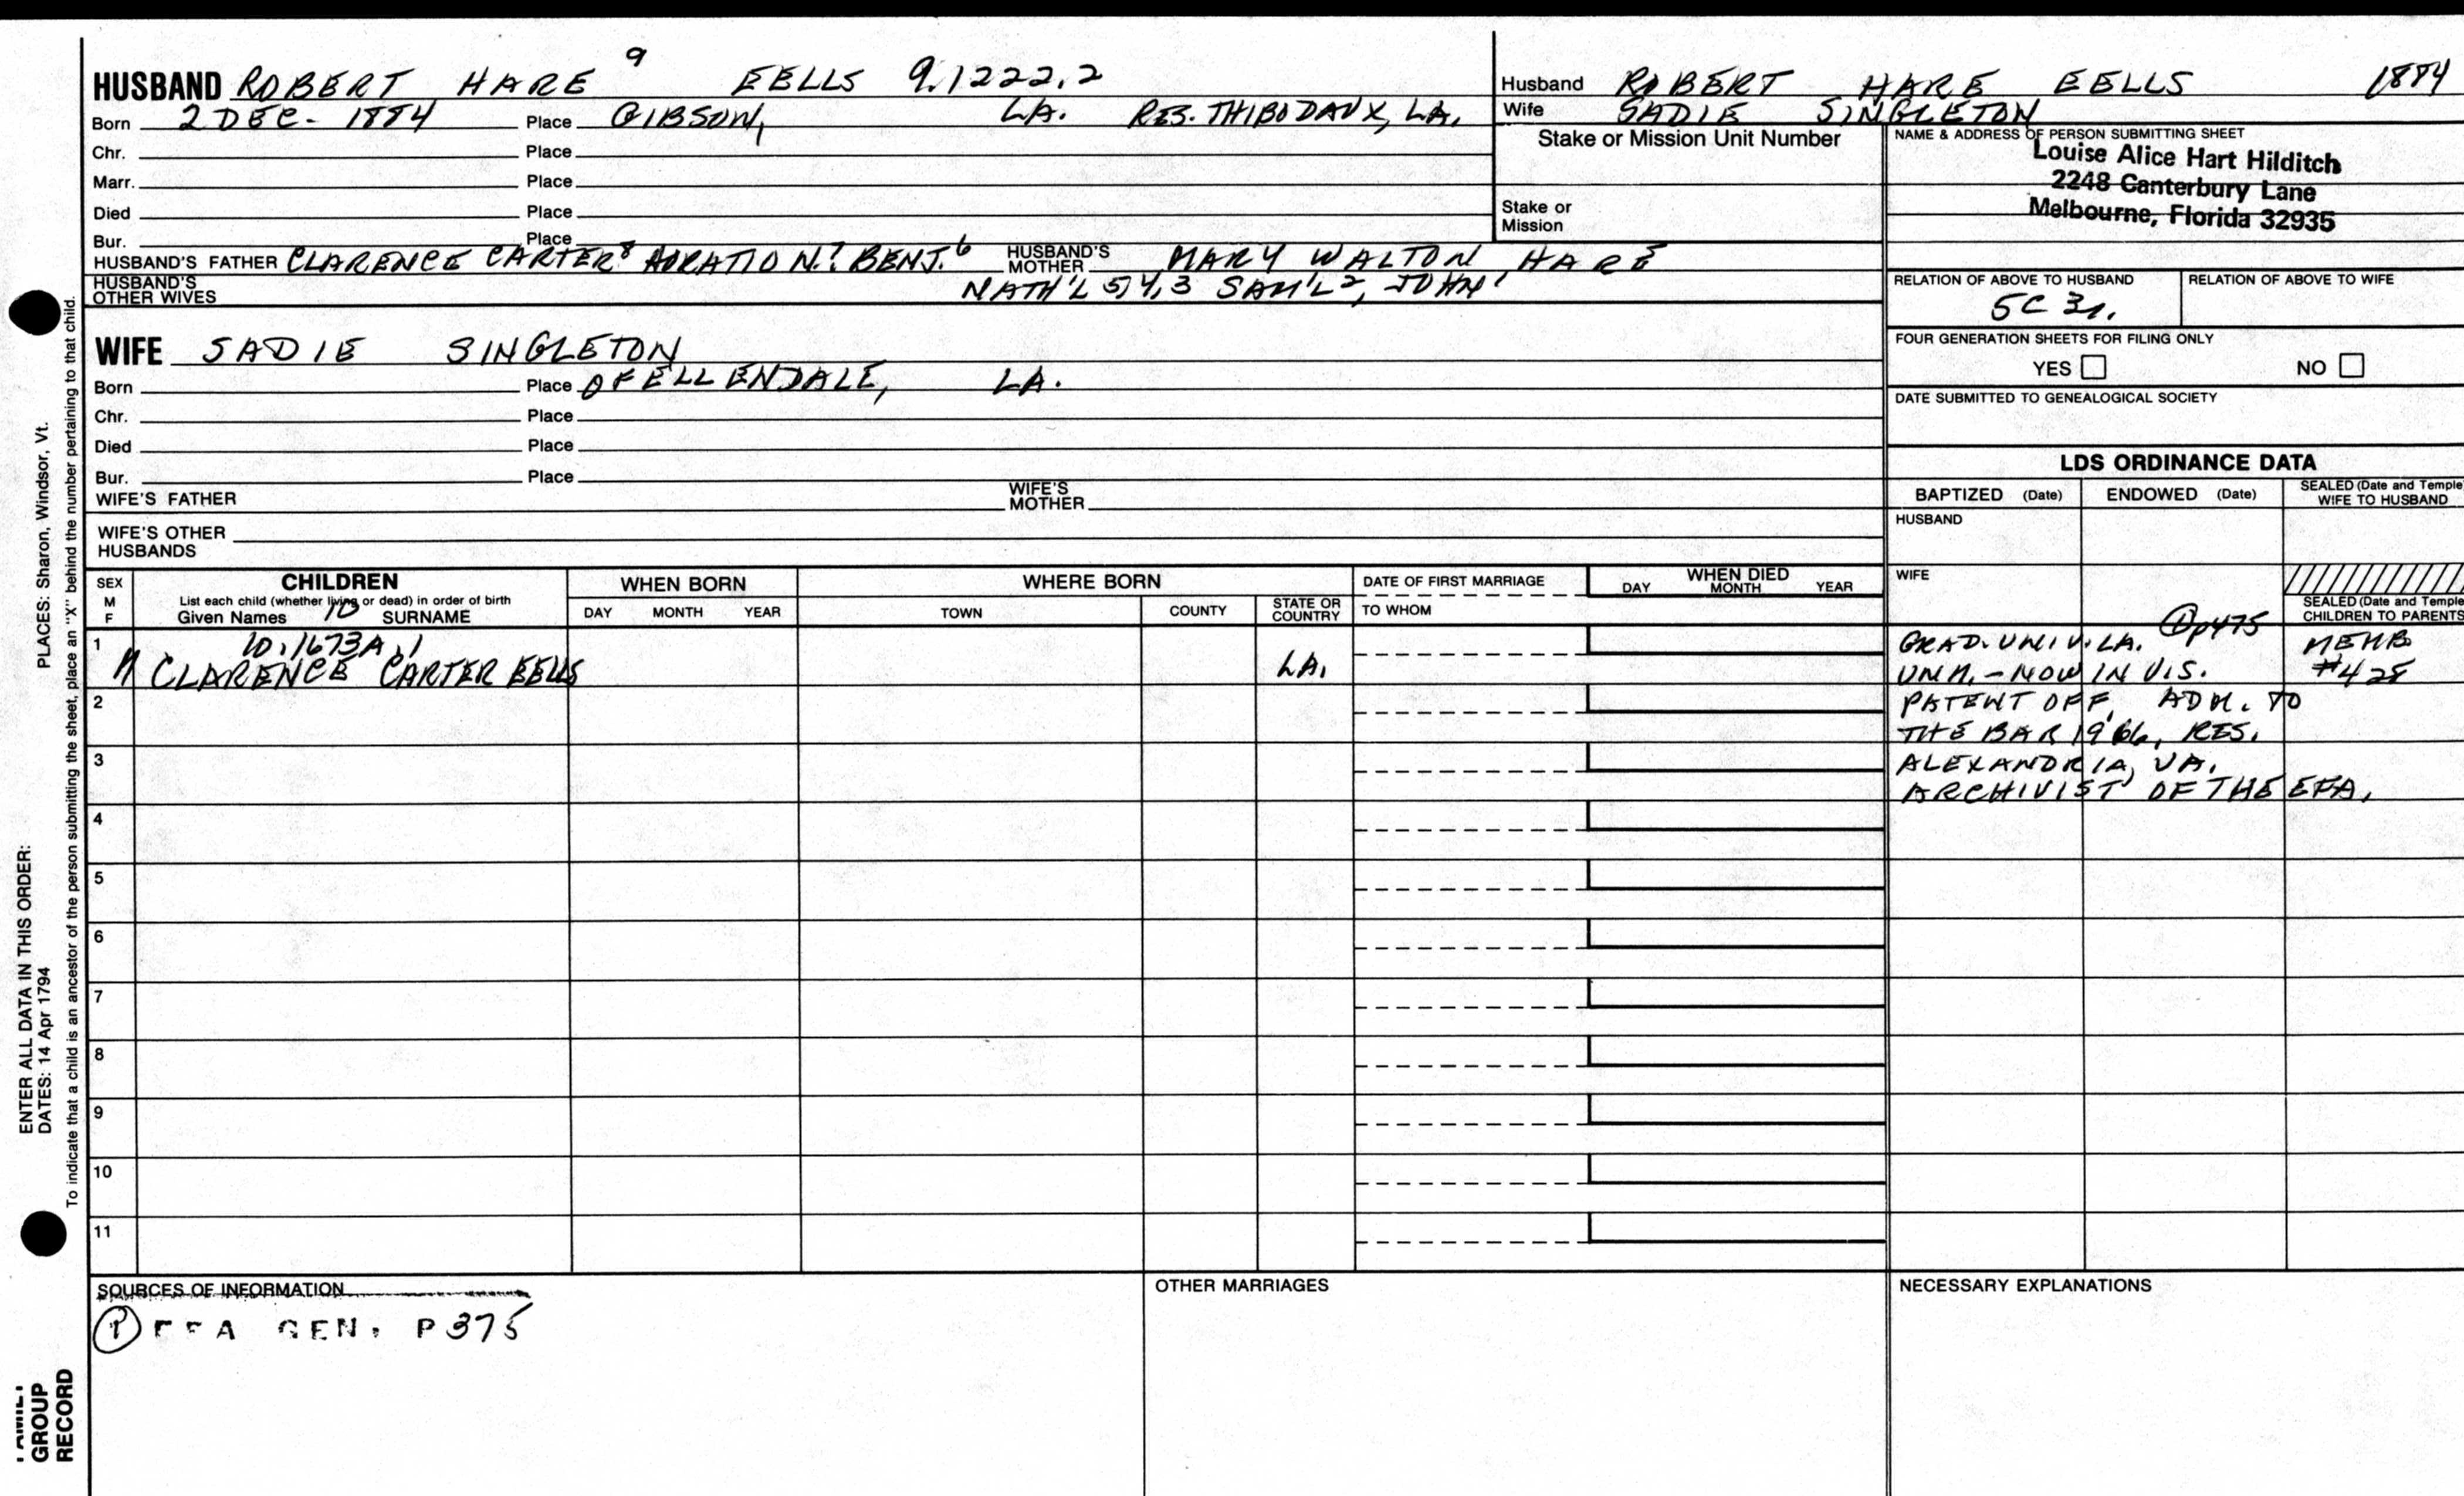 HUSBAND ROBERT HARE 9 EELLS 9.1222.2
Born 2 DEC. 1884 Place GIBSON, LA. RES. THIBODAUX, LA.
Chr. Place
Marr. Place
Died Place
Bur. Place
HUSBAND'S FATHER CLARENCE CARTER8 HORATIO N.7 BENJ.6 HUSBAND'S MOTHER MARY WALTON HARE
HUSBAND'S OTHER WIVES NATH'L 5,4,3 SAM'L2, JOHN1
Husband ROBERT HARE EELLS 1884
Wife SADIE SINGLETON
Stake or Mission Unit Number
Stake or Mission
NAME & ADDRESS OF PERSON SUBMITTING SHEET
Louise Alice Hart Hilditch
2248 Canterbury Lane
Melbourne, Florida 32935
RELATION OF ABOVE TO HUSBAND RELATION OF ABOVE TO WIFE
5C 3r.
FOUR GENERATION SHEETS FOR FILING ONLY
YES NO
DATE SUBMITTED TO GENEALOGICAL SOCIETY
WIFE SADIE SINGLETON
Born Place OF ELLENDALE, LA.
Chr. Place
Died Place
Bur. Place
WIFE'S FATHER WIFE'S MOTHER
WIFE'S OTHER HUSBANDS
LDS ORDINANCE DATA
BAPTIZED (Date) ENDOWED (Date) SEALED (Date and Temple) WIFE TO HUSBAND
HUSBAND
WIFE
SEALED (Date and Temple) CHILDREN TO PARENTS
SEX M F
CHILDREN
List each child (whether living or dead) in order of birth
Given Names 10 SURNAME
WHEN BORN
DAY MONTH YEAR
WHERE BORN
TOWN COUNTY STATE OR COUNTRY
DATE OF FIRST MARRIAGE
TO WHOM
WHEN DIED
DAY MONTH YEAR
1 10.1673A.1
M CLARENCE CARTER EELLS LA.
P475
GRAD. UNIV. LA. MEMB.
UNM. - NOW IN U.S. #428
PATENT OFF. ADM. TO
THE BAR 1966, RES.
ALEXANDRIA, VA.
ARCHIVIST OF THE EFA.
2
3
4
5
6
7
8
9
10
11
SOURCES OF INFORMATION
1 EFA GEN. P375
OTHER MARRIAGES
NECESSARY EXPLANATIONS
ENTER ALL DATA IN THIS ORDER:
DATES: 14 Apr 1794 PLACES: Sharon, Windsor, Vt.
To indicate that a child is an ancestor of the person submitting the sheet, place an "X" behind the number pertaining to that child.
FAMILY
GROUP
RECORD